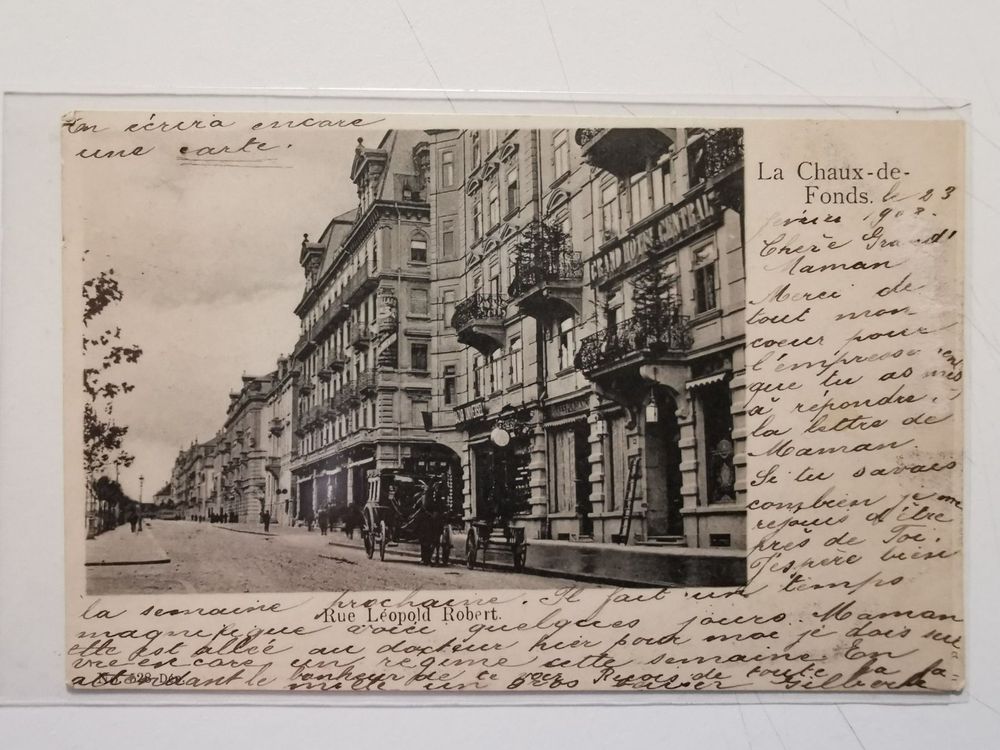 En écrira encore
une carte.
La Chaux-de-
Fonds.
le 23
février 190
Chère Grand'
Maman
Merci de
tout mon
coeur pour
l'empresse
que tu as mis
à répondre
la lettre de
Maman
Si tu savais
combien je me
rejouis d'être
près de Toi.
J'espère bien
la semaine prochaine. Il fait un temps
Rue Léopold Robert.
magnifique voici quelques jours. Maman
elle est allée au docteur hier pour moi je dois
vre encore un régime cette semaine. En
attendant le bonheur de te Reçois de toute la fa-
mille un gros baiser Gilberte
GRAND HOTEL CENTRAL